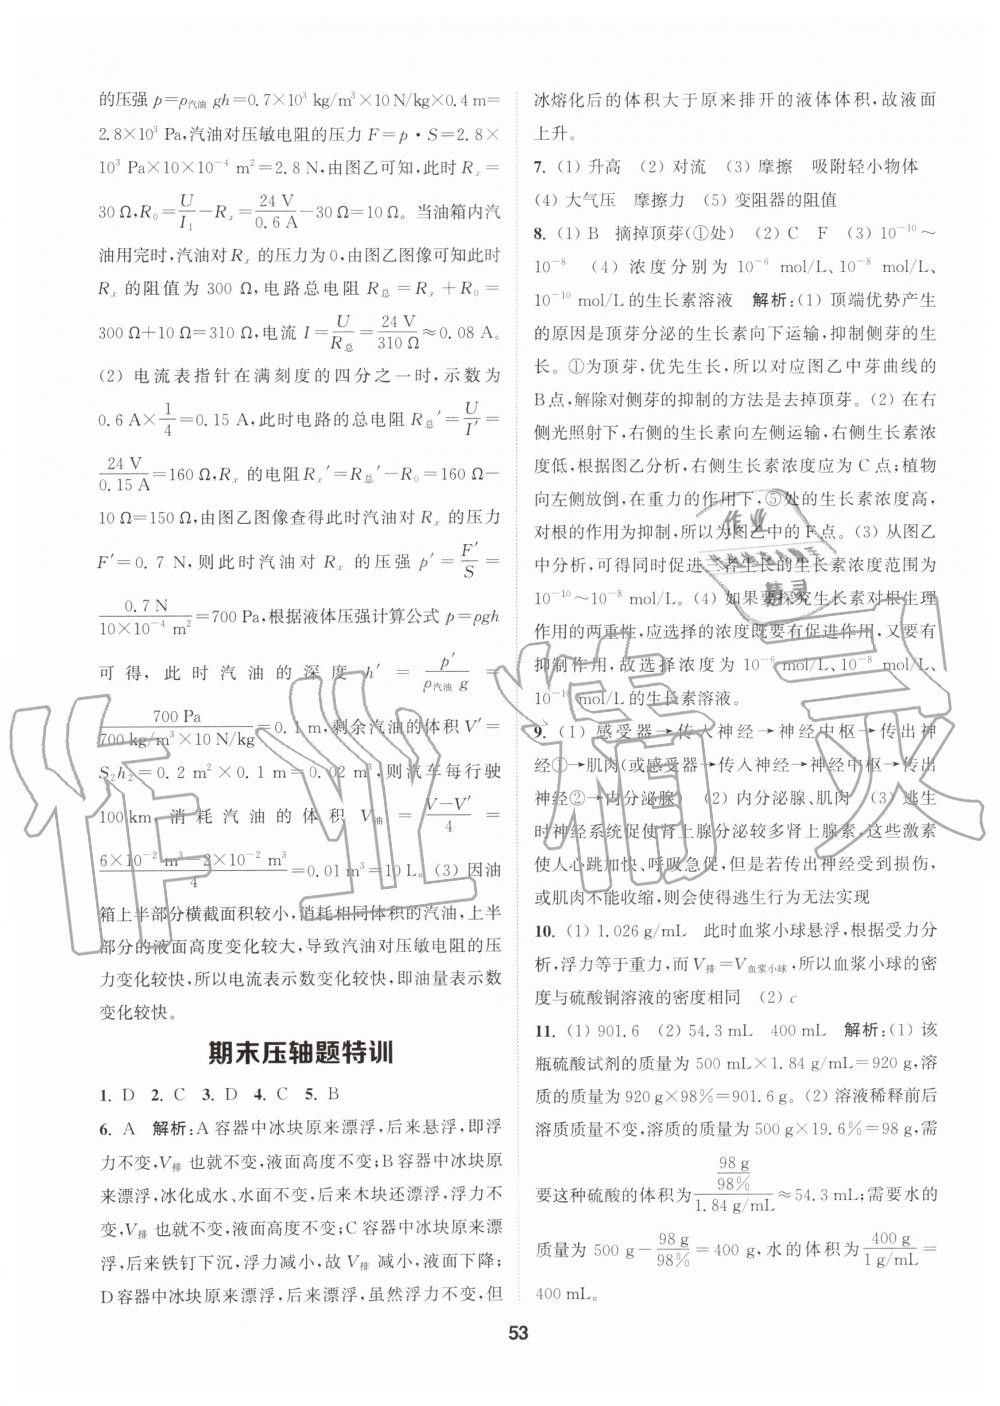 的压强 p=ρ汽油 gh=0.7×10³ kg/m³×10 N/kg×0.4 m=
2.8×10³ Pa,汽油对压敏电阻的压力 F=p·S=2.8×
10³ Pa×10×10⁻⁴ m²=2.8 N,由图乙可知,此时 Rₓ=
30 Ω,R₀=U/I₁−Rₓ=24 V/0.6 A−30 Ω=10 Ω。当油箱内汽
油用完时,汽油对 Rₓ 的压力为0,由图乙图像可知此时
Rₓ 的阻值为 300 Ω,电路总电阻 R总=Rₓ+R₀=
300 Ω+10 Ω=310 Ω,电流 I=U/R总=24 V/310 Ω≈0.08 A。
(2) 电流表指针在满刻度的四分之一时,示数为
0.6 A×1/4=0.15 A,此时电路的总电阻 R总′=U/I′=
24 V/0.15 A=160 Ω,Rₓ 的电阻Rₓ′=R总′−R₀=160 Ω−
10 Ω=150 Ω,由图乙图像查得此时汽油对 Rₓ 的压力
F′=0.7 N,则此时汽油对 Rₓ 的压强 p′=F′/S=
0.7 N/10×10⁻⁴ m²=700 Pa,根据液体压强计算公式 p=ρgh
可得,此时汽油的深度 h′=p′/ρ汽油 g=
700 Pa/700 kg/m³×10 N/kg=0.1 m,剩余汽油的体积 V′=
S₂h₂=0.2 m²×0.1 m=0.02 m³,则汽车每行驶
100 km 消耗汽油的体积 V油=V−V′/4=
6×10⁻² m³−2×10⁻² m³/4=0.01 m³=10 L。(3) 因油
箱上半部分横截面积较小,消耗相同体积的汽油,上半
部分的液面高度变化较大,导致汽油对压敏电阻的压
力变化较快,所以电流表示数变化较快,即油量表示数
变化较快。
期末压轴题特训
1. D 2. C 3. D 4. C 5. B
6. A 解析:A容器中冰块原来漂浮,后来悬浮,即浮
力不变,V排 也就不变,液面高度不变;B容器中冰块原
来漂浮,冰化成水、水面不变,后来木块还漂浮,浮力不
变,V排 也就不变,液面高度不变;C容器中冰块原来漂
浮,后来铁钉下沉,浮力减小,故 V排 减小,液面下降;
D容器中冰块原来漂浮,后来漂浮,虽然浮力不变,但
冰熔化后的体积大于原来排开的液体体积,故液面
上升。
7. (1) 升高 (2) 对流 (3) 摩擦 吸附轻小物体
(4) 大气压 摩擦力 (5) 变阻器的阻值
8. (1) B 摘掉顶芽(①处) (2) C F (3) 10⁻¹⁰～
10⁻⁸ (4) 浓度分别为 10⁻⁶ mol/L、10⁻⁸ mol/L、
10⁻¹⁰ mol/L的生长素溶液 解析:(1) 顶端优势产生
的原因是顶芽分泌的生长素向下运输,抑制侧芽的生
长。①为顶芽,优先生长,所以对应图乙中芽曲线的
B点,解除对侧芽的抑制的方法是去掉顶芽。(2) 在右
侧光照射下,右侧的生长素向左侧运输,右侧生长素浓
度低,根据图乙分析,右侧生长素浓度应为 C点;植物
向左侧放倒,在重力的作用下,⑤处的生长素浓度高,
对根的作用为抑制,所以为图乙中的 F点。(3) 从图乙
中分析,可得同时促进三者生长的生长素浓度范围为
10⁻¹⁰～10⁻⁸ mol/L。(4) 如果要探究生长素对根生理
作用的两重性,应选择的浓度既要有促进作用,又要有
抑制作用,故选择浓度为 10⁻⁶ mol/L、10⁻⁸ mol/L、
10⁻¹⁰ mol/L的生长素溶液。
9. (1) 感受器→传入神经→神经中枢→传出神
经①→肌肉(或感受器→传入神经→神经中枢→传出
神经②→内分泌腺) (2) 内分泌腺、肌肉 (3) 逃生
时神经系统促使肾上腺分泌较多肾上腺素,这些激素
使人心跳加快、呼吸急促,但是若传出神经受到损伤,
或肌肉不能收缩,则会使得逃生行为无法实现
10. (1) 1.026 g/mL 此时血浆小球悬浮,根据受力分
析,浮力等于重力,而V排=V血浆小球,所以血浆小球的密
度与硫酸铜溶液的密度相同 (2) c
11. (1) 901.6 (2) 54.3 mL 400 mL 解析:(1) 该
瓶硫酸试剂的质量为 500 mL×1.84 g/mL=920 g,溶
质的质量为 920 g×98%=901.6 g。(2) 溶液稀释前后
溶质质量不变,溶质的质量为 500 g×19.6%=98 g,需
要这种硫酸的体积为98 g/98%/1.84 g/mL≈54.3 mL;需要水的
质量为 500 g−98 g/98%=400 g,水的体积为400 g/1 g/mL=
400 mL。
53
作业精灵